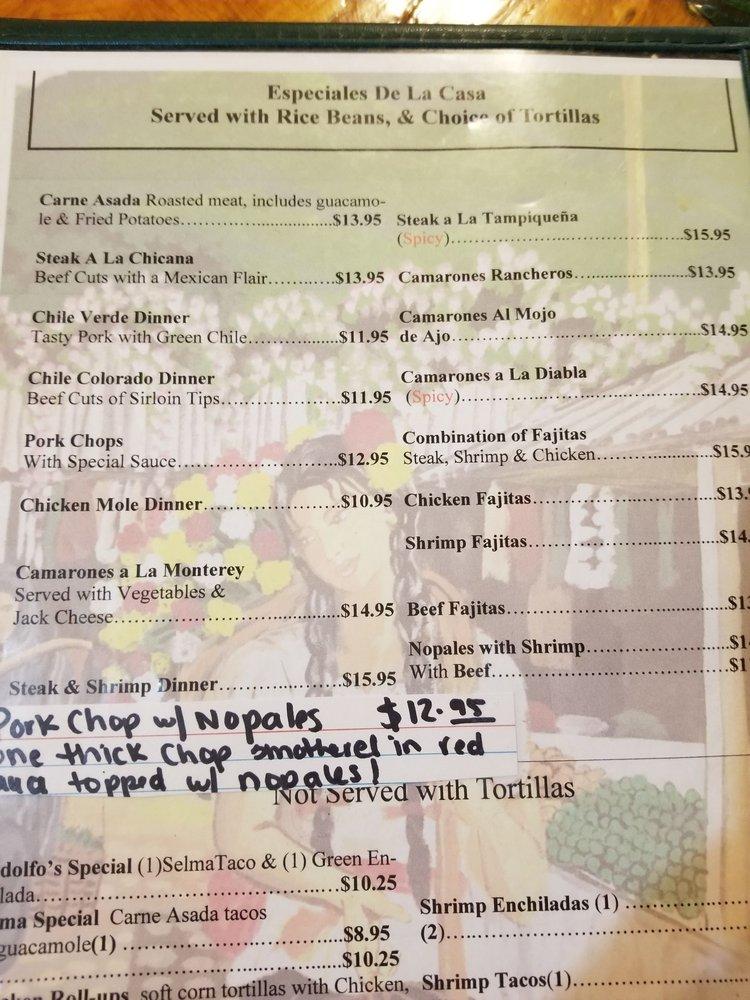 Especiales De La Casa
Served with Rice Beans, & Choice of Tortillas
Carne Asada Roasted meat, includes guacamo-
le & Fried Potatoes.....................................$13.95
Steak A La Chicana
Beef Cuts with a Mexican Flair................$13.95
Chile Verde Dinner
Tasty Pork with Green Chile......................$11.95
Chile Colorado Dinner
Beef Cuts of Sirloin Tips............................$11.95
Pork Chops
With Special Sauce.....................................$12.95
Chicken Mole Dinner................................$10.95
Camarones a La Monterey
Served with Vegetables &
Jack Cheese...............................................$14.95
Steak & Shrimp Dinner............................$15.95
Steak a La Tampiqueña
(Spicy).....................................................$15.95
Camarones Rancheros..........................$13.95
Camarones Al Mojo
de Ajo......................................................$14.95
Camarones a La Diabla
(Spicy).....................................................$14.95
Combination of Fajitas
Steak, Shrimp & Chicken........................$15.9
Chicken Fajitas........................................$13.
Shrimp Fajitas.........................................$14.
Beef Fajitas..............................................$13
Nopales with Shrimp..............................$1
With Beef..................................................$1
Pork Chop w/ Nopales $12.95
one thick Chop smotherel in red
topped w/ nopales!
Not Served with Tortillas
dolfo's Special (1)SelmaTaco & (1) Green En-
lada..........................................................$10.25
ma Special Carne Asada tacos
guacamole(1) ..........................................$8.95
..................................................................$10.25
Roll-ups, soft corn tortillas with Chicken,
Shrimp Enchiladas (1) ..................
(2)..................................................
Shrimp Tacos(1)............................